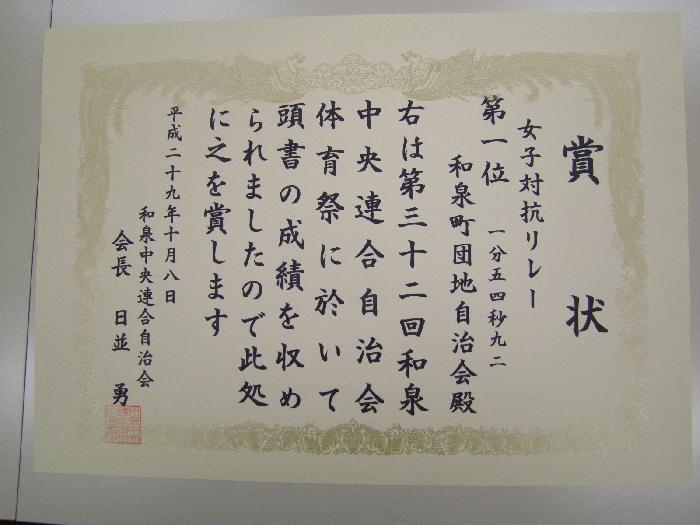 賞状
女子対抗リレー
第一位 一分五四秒九二
和泉町団地自治会殿
右は第三十二回和泉
中央連合自治会
体育祭に於いて
頭書の成績を収め
られましたので此処
に之を賞します
平成二十九年十月八日
和泉中央連合自治会
会長 日並 勇